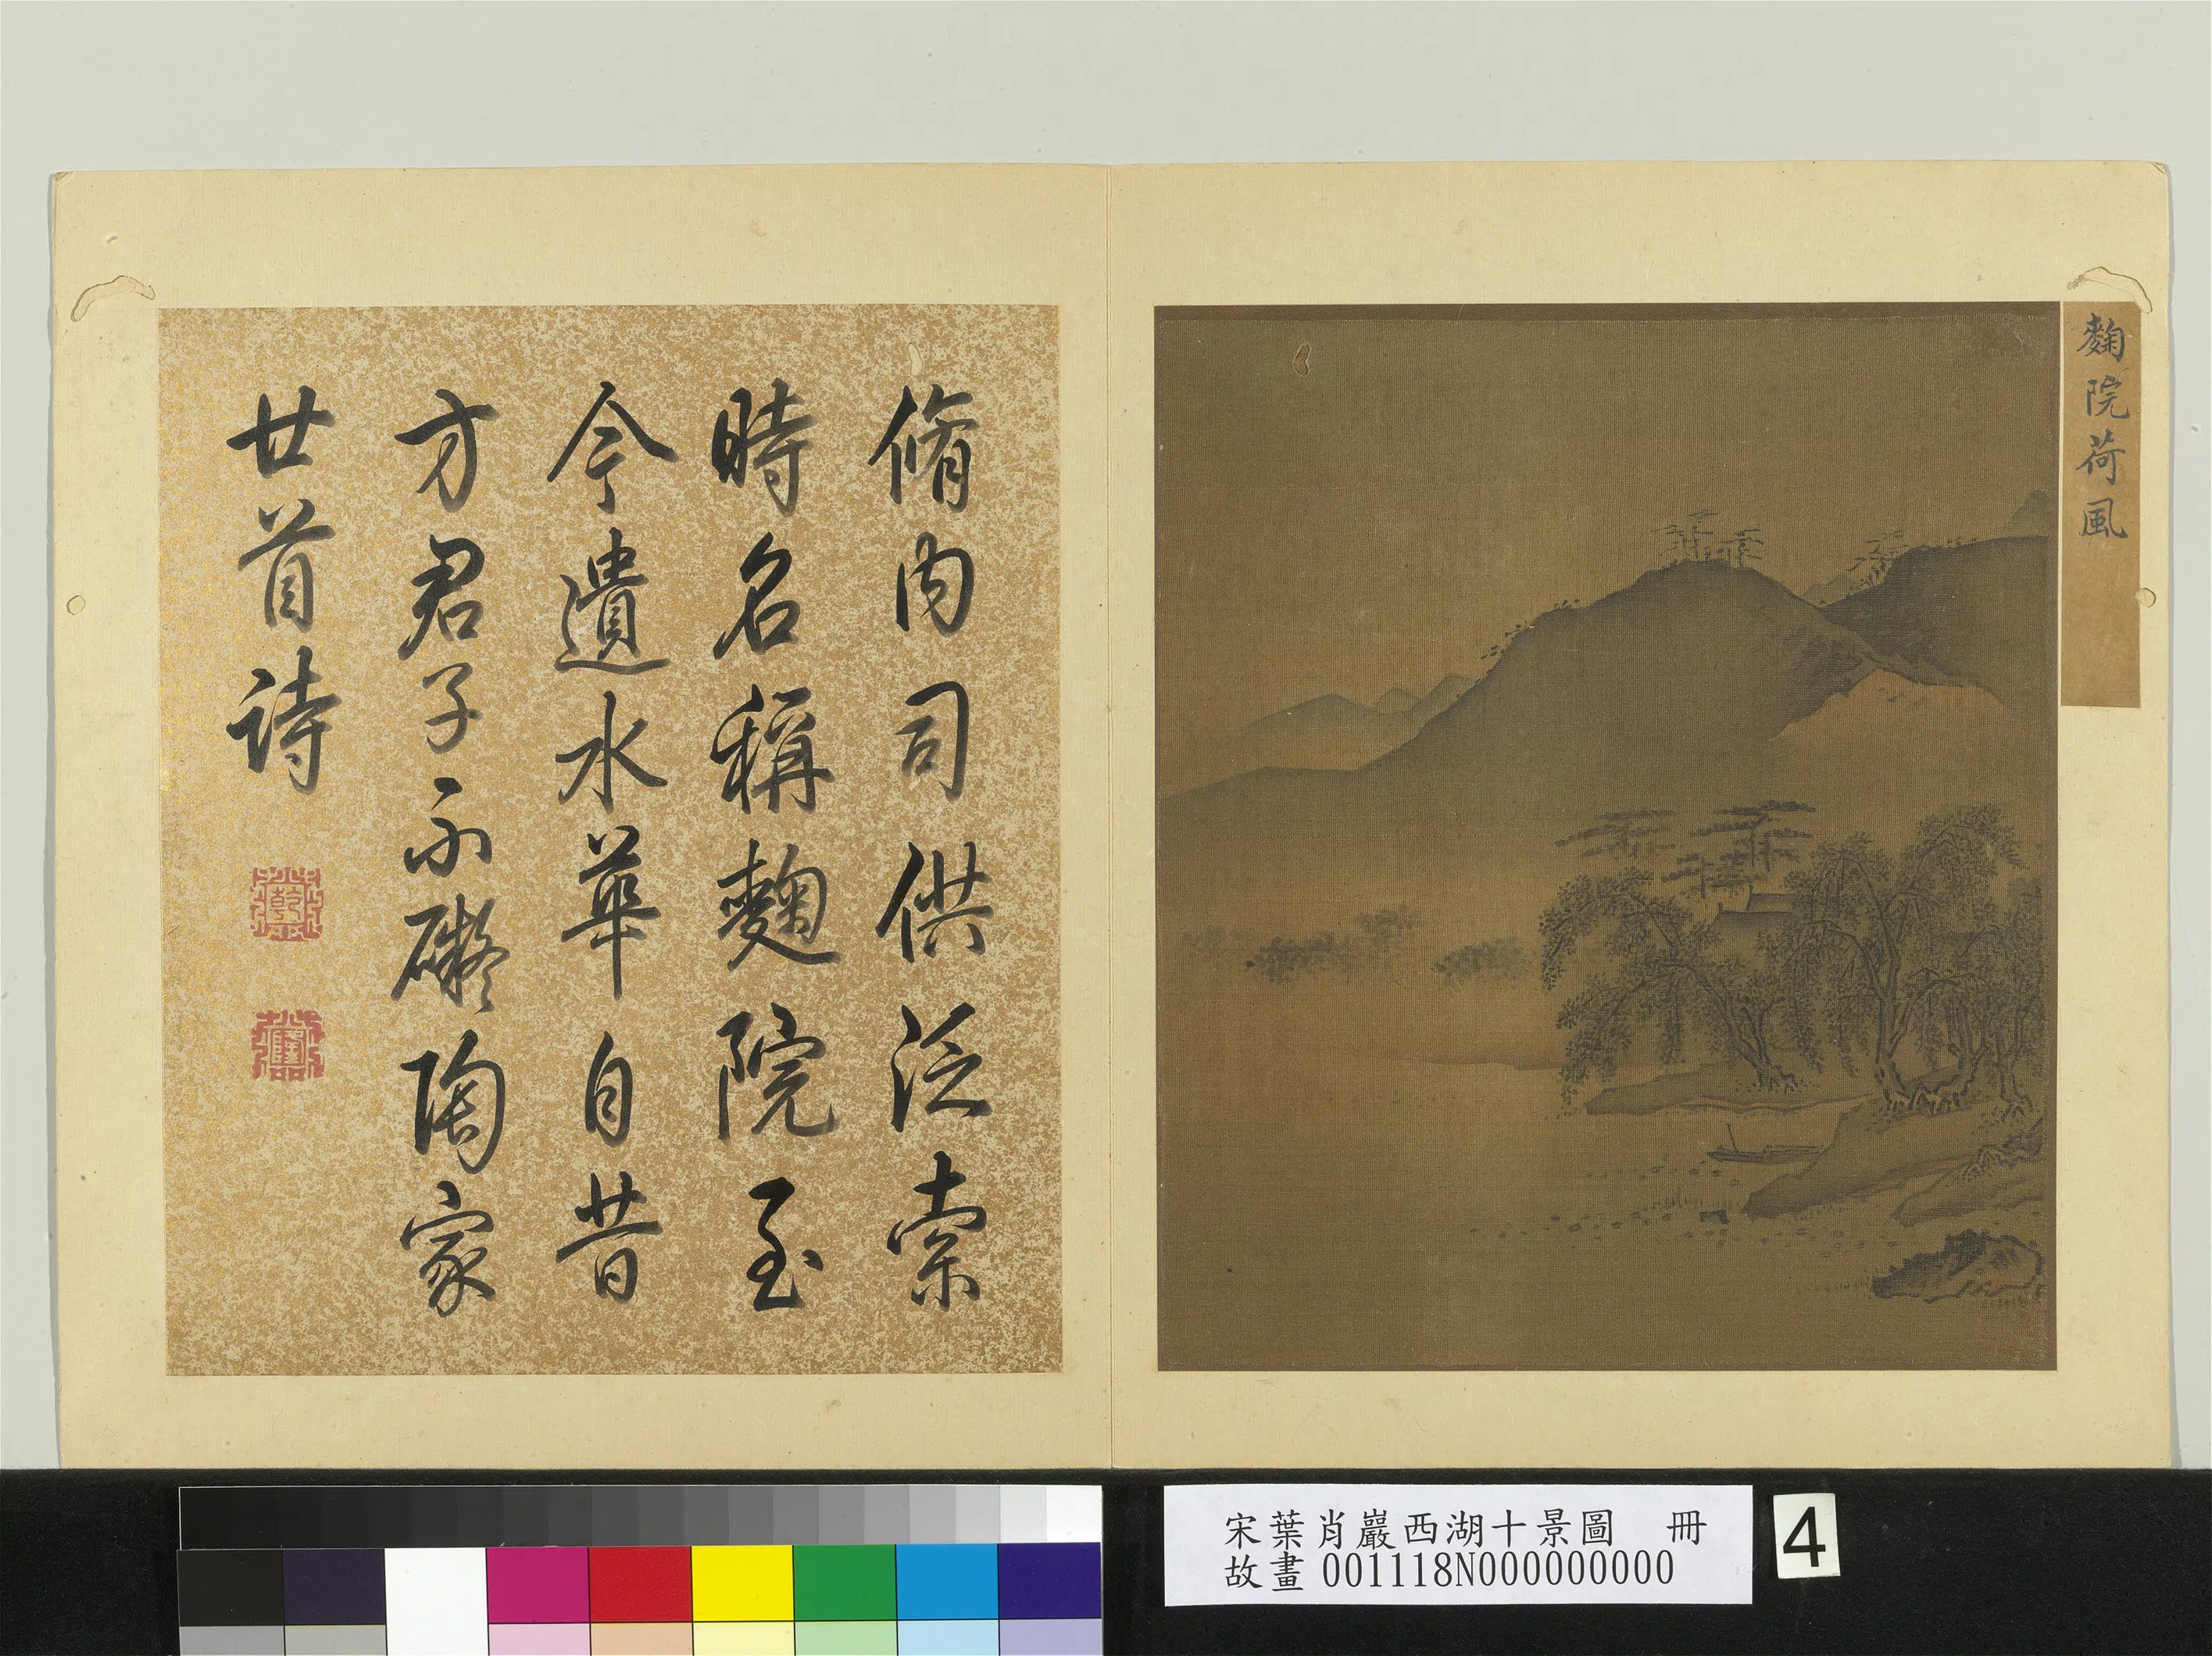 麴院荷風
脩內司供泛索
時名稱麴院至
今遺水華自昔
方君子不礙陶家
廿首詩
乾
隆
宋葉肖巖西湖十景圖 冊
故畫 001118N000000000
4